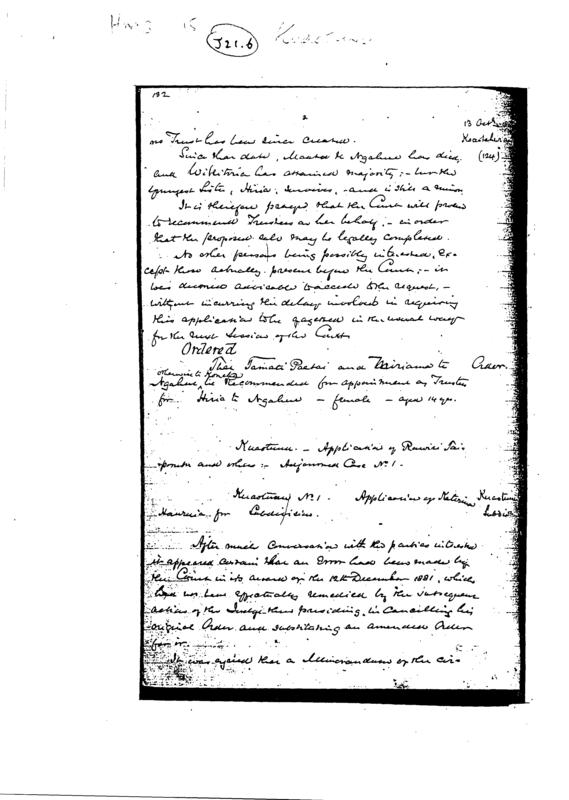 J21.6
132
2
13 Octr
no Trust has been since created.
Since that date, te Ngahue has died,
(124)
and Wikitoria has attained majority; - but the
youngest Sister, Hiria, survives, - and is still a minor
It is therefore prayed that the Court will proceed
to recommend Trustees on her behalf, - in order
that the proposed sale may be legally completed.
No other persons being possibly interested, ex-
cept those actually present before the Court; - it
was deemed advisable to accede to the request, -
without incurring the delay involved in requiring
this application to be gazetted in the usual way
for the next Session of the Court.
Ordered
That Tamati Paetai and te Order.
otherwise te
Ngahue, be Recommended for appointment as Trustees
for Hiria te Ngahue - female - aged 14 yrs.
Kuaotunu. - Application of
and others: - Adjourned Case No. 1.
Kuaotunu No. 1. Application of Kuaotunu
for Subdivision.
After much Conversation with the parties interested
it appeared certain that an Error had been made by
the Court in its award on the 12th December 1881, which
had not been effectually remedied by the subsequent
action of the Judge then presiding, in Cancelling his
original Order and substituting an amended Order
for it.
It was agreed that a Memorandum of the cir-